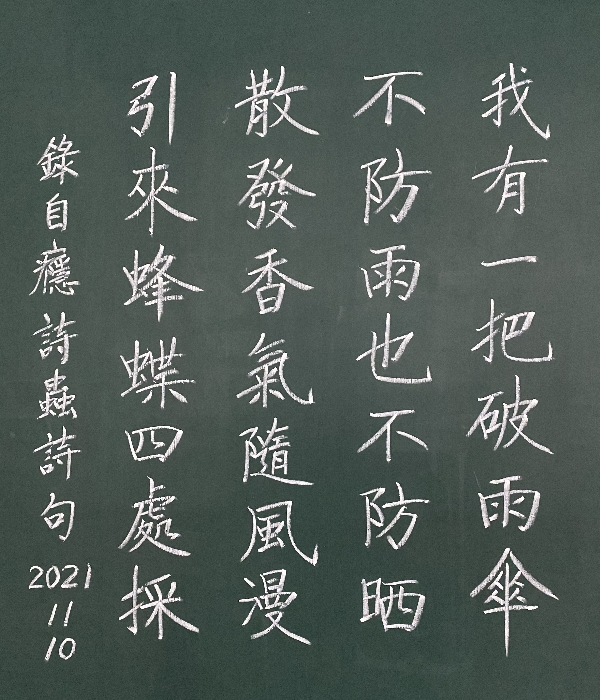 我有一把破雨傘
不防雨也不防晒
散發香氣隨風漫
引來蜂蝶四處採
錄自癮詩蟲詩句
2021
11
10